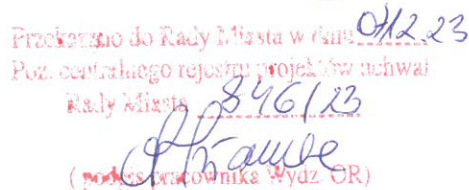 Przekazano do Rady Miasta w dniu 07.12.23
Poz. centralnego rejestru projektów uchwał
Rady Miasta 846/23
( podpis pracownika Wydz. OR)